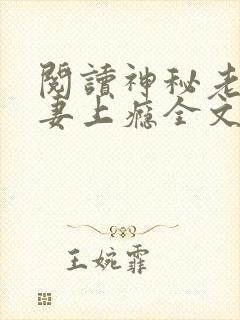 閱讀神秘老
妻上癮全文
王婉霏